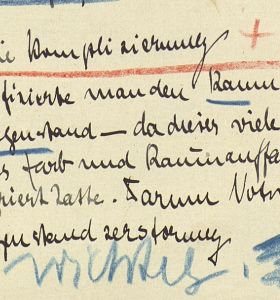 ie Komplizierung +
fizierte man den Raum
genstand – da dieses viele
s Farb und Raumauffa
riert hatte. Darum Notw
genstandzerstörung
wichtig.